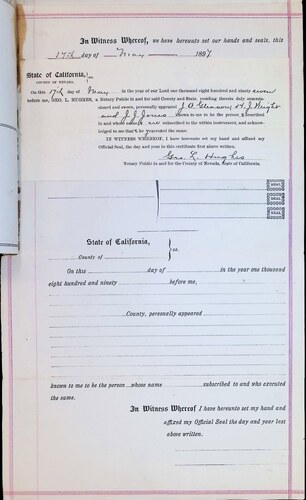 In Witness Whereof, we have hereunto set our hands and seals, this
17th day of May 1897
State of California, ss.
COUNTY OF NEVADA.
On this 17th day of May in the year of our Lord one thousand eight hundred and ninety seven
before me, GEO. L. HUGHES, a Notary Public in and for said County and State, residing therein duly commis-
sioned and sworn, personally appeared J. O. Gleason, H. J. Wright
and J. J. Jones known to me to be the person s described
in and whose name s are subscribed to the within instrument, and acknow-
ledged to me that he y executed the same.
IN WITNESS WHEREOF, I have hereunto set my hand and affixed my
Official Seal, the day and year in this certificate first above written.
Geo. L. Hughes
Notary Public in and for the County of Nevada, State of California.
SEAL
SEAL
SEAL
State of California,
ss.
County of
On this day of in the year one thousand
eight hundred and ninety before me,
County, personally appeared
known to me to be the person whose name subscribed to and who executed
the same.
In Witness Whereof I have hereunto set my hand and
affixed my Official Seal the day and year last
above written.